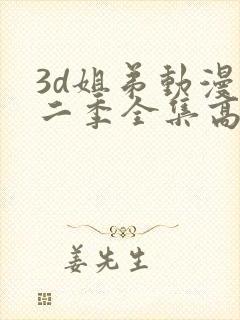 3d姐弟動漫
二季全集高
姜先生